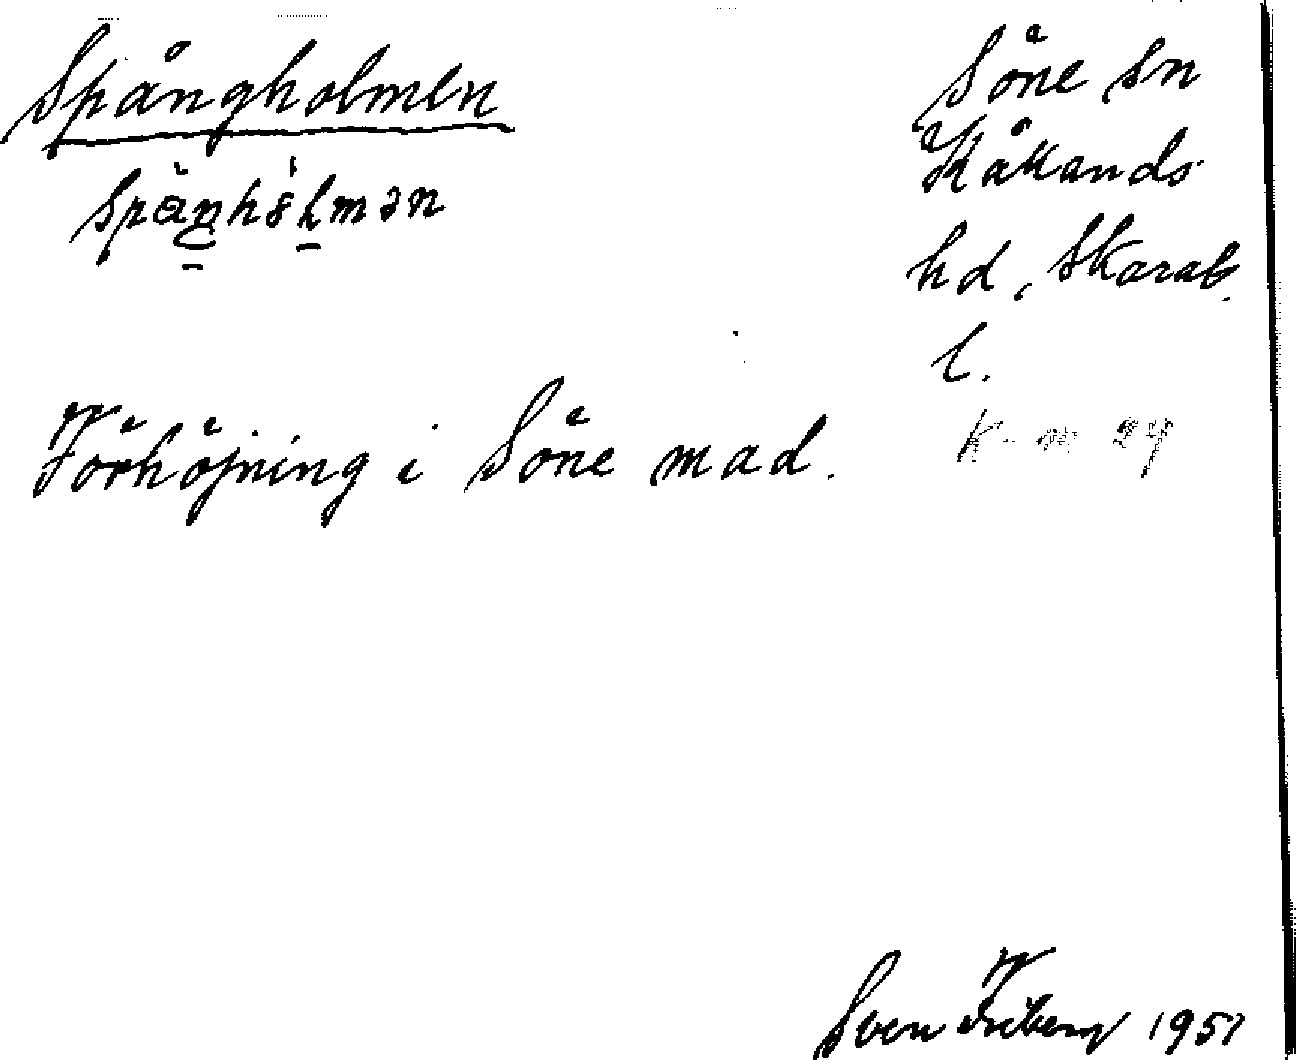 Spångholmen
Söne sn
Kållands
hd, Skarab.
l.
Förhöjning i Söne mad.
Sven Friberg 1951